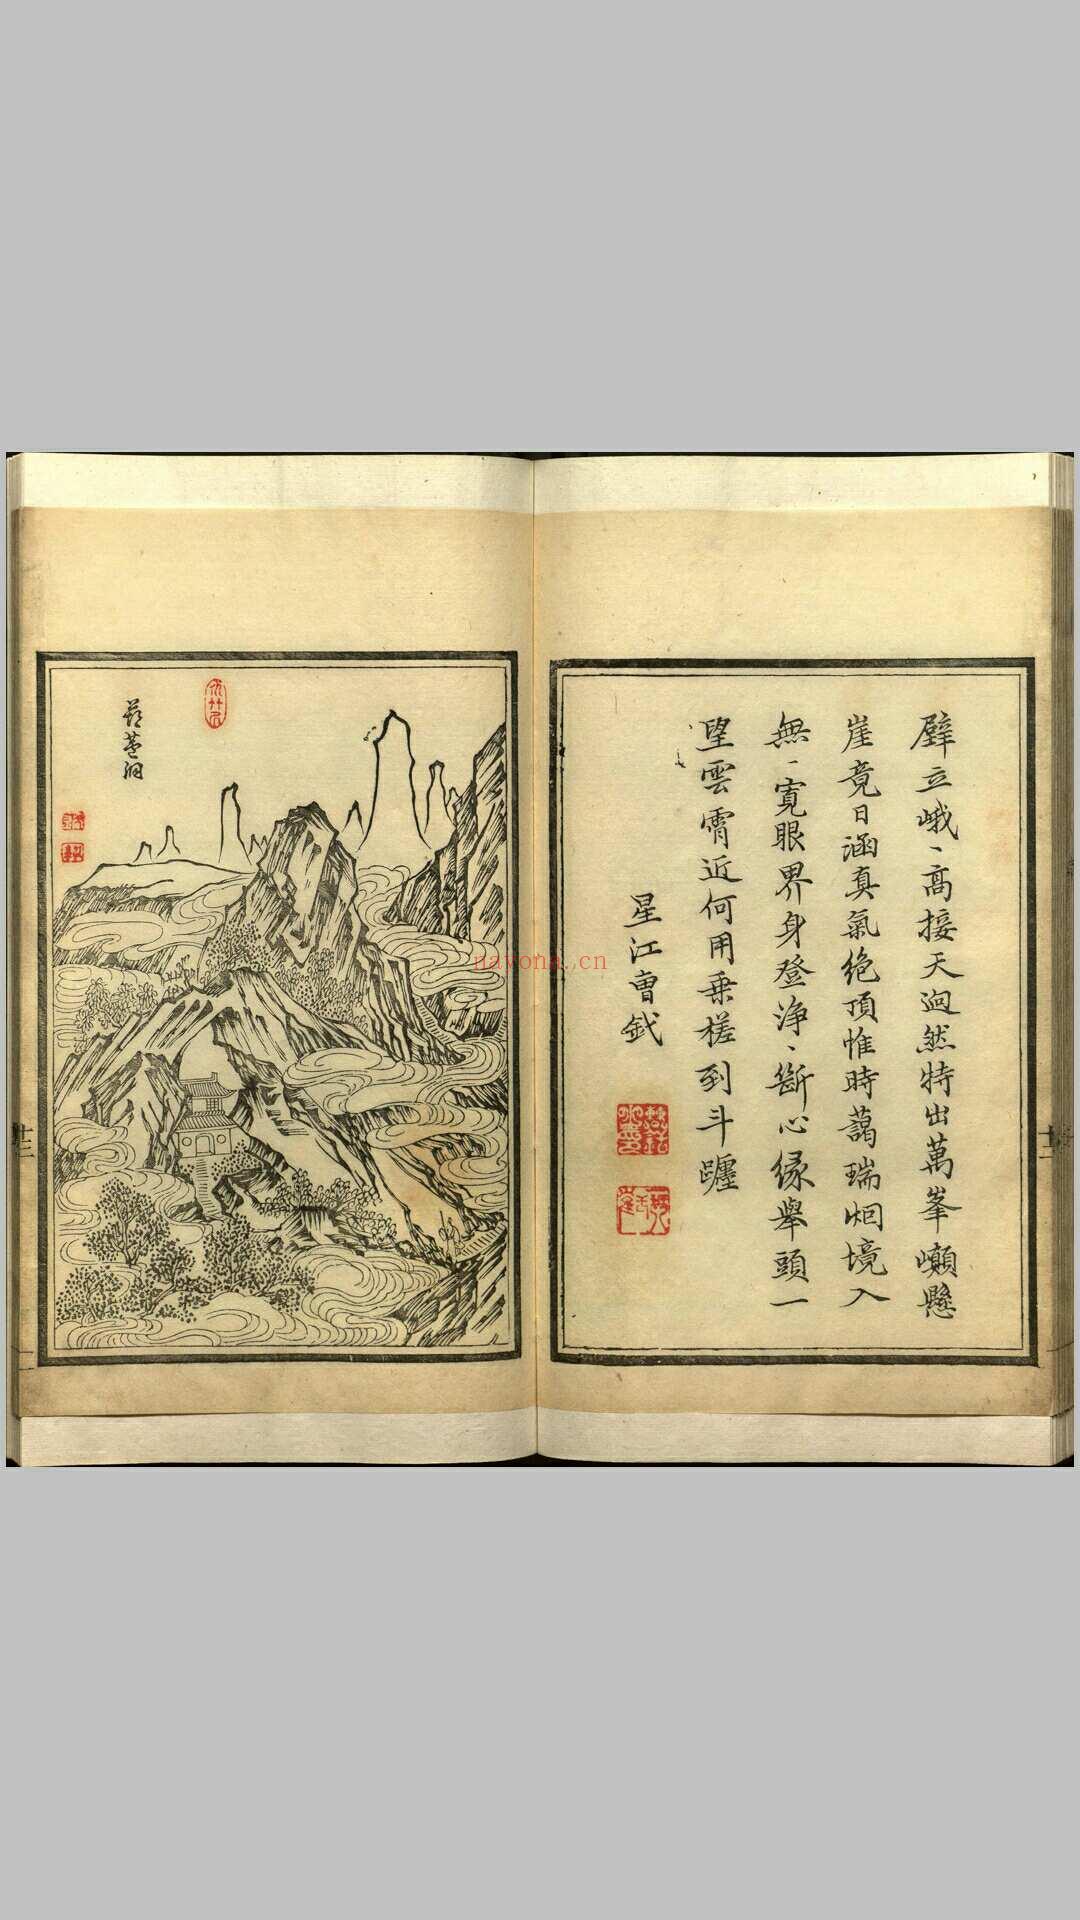 壁立峨、高接天迥然特出萬峯巔懸
崖竟日涵真氣絶頂惟時藹瑞烟境入
無、寬眼界身登淨、斷心緣舉頭一
望雲霄近何用乗槎到斗躔
星江曹鈛
葫蘆洞
navona.cn